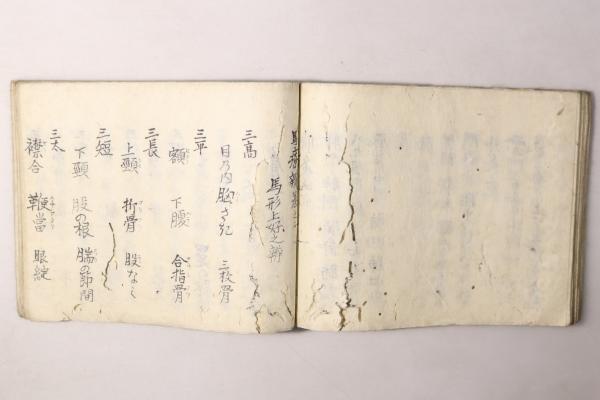 馬形上好之辨
三高
目乃内 胸さき 三枚骨
三平
額 下腹 合指骨
三長
上頸 折骨 股なミ
三短
下頸 股の根 腨の節間
三太
襟合 鞭當 眼綻